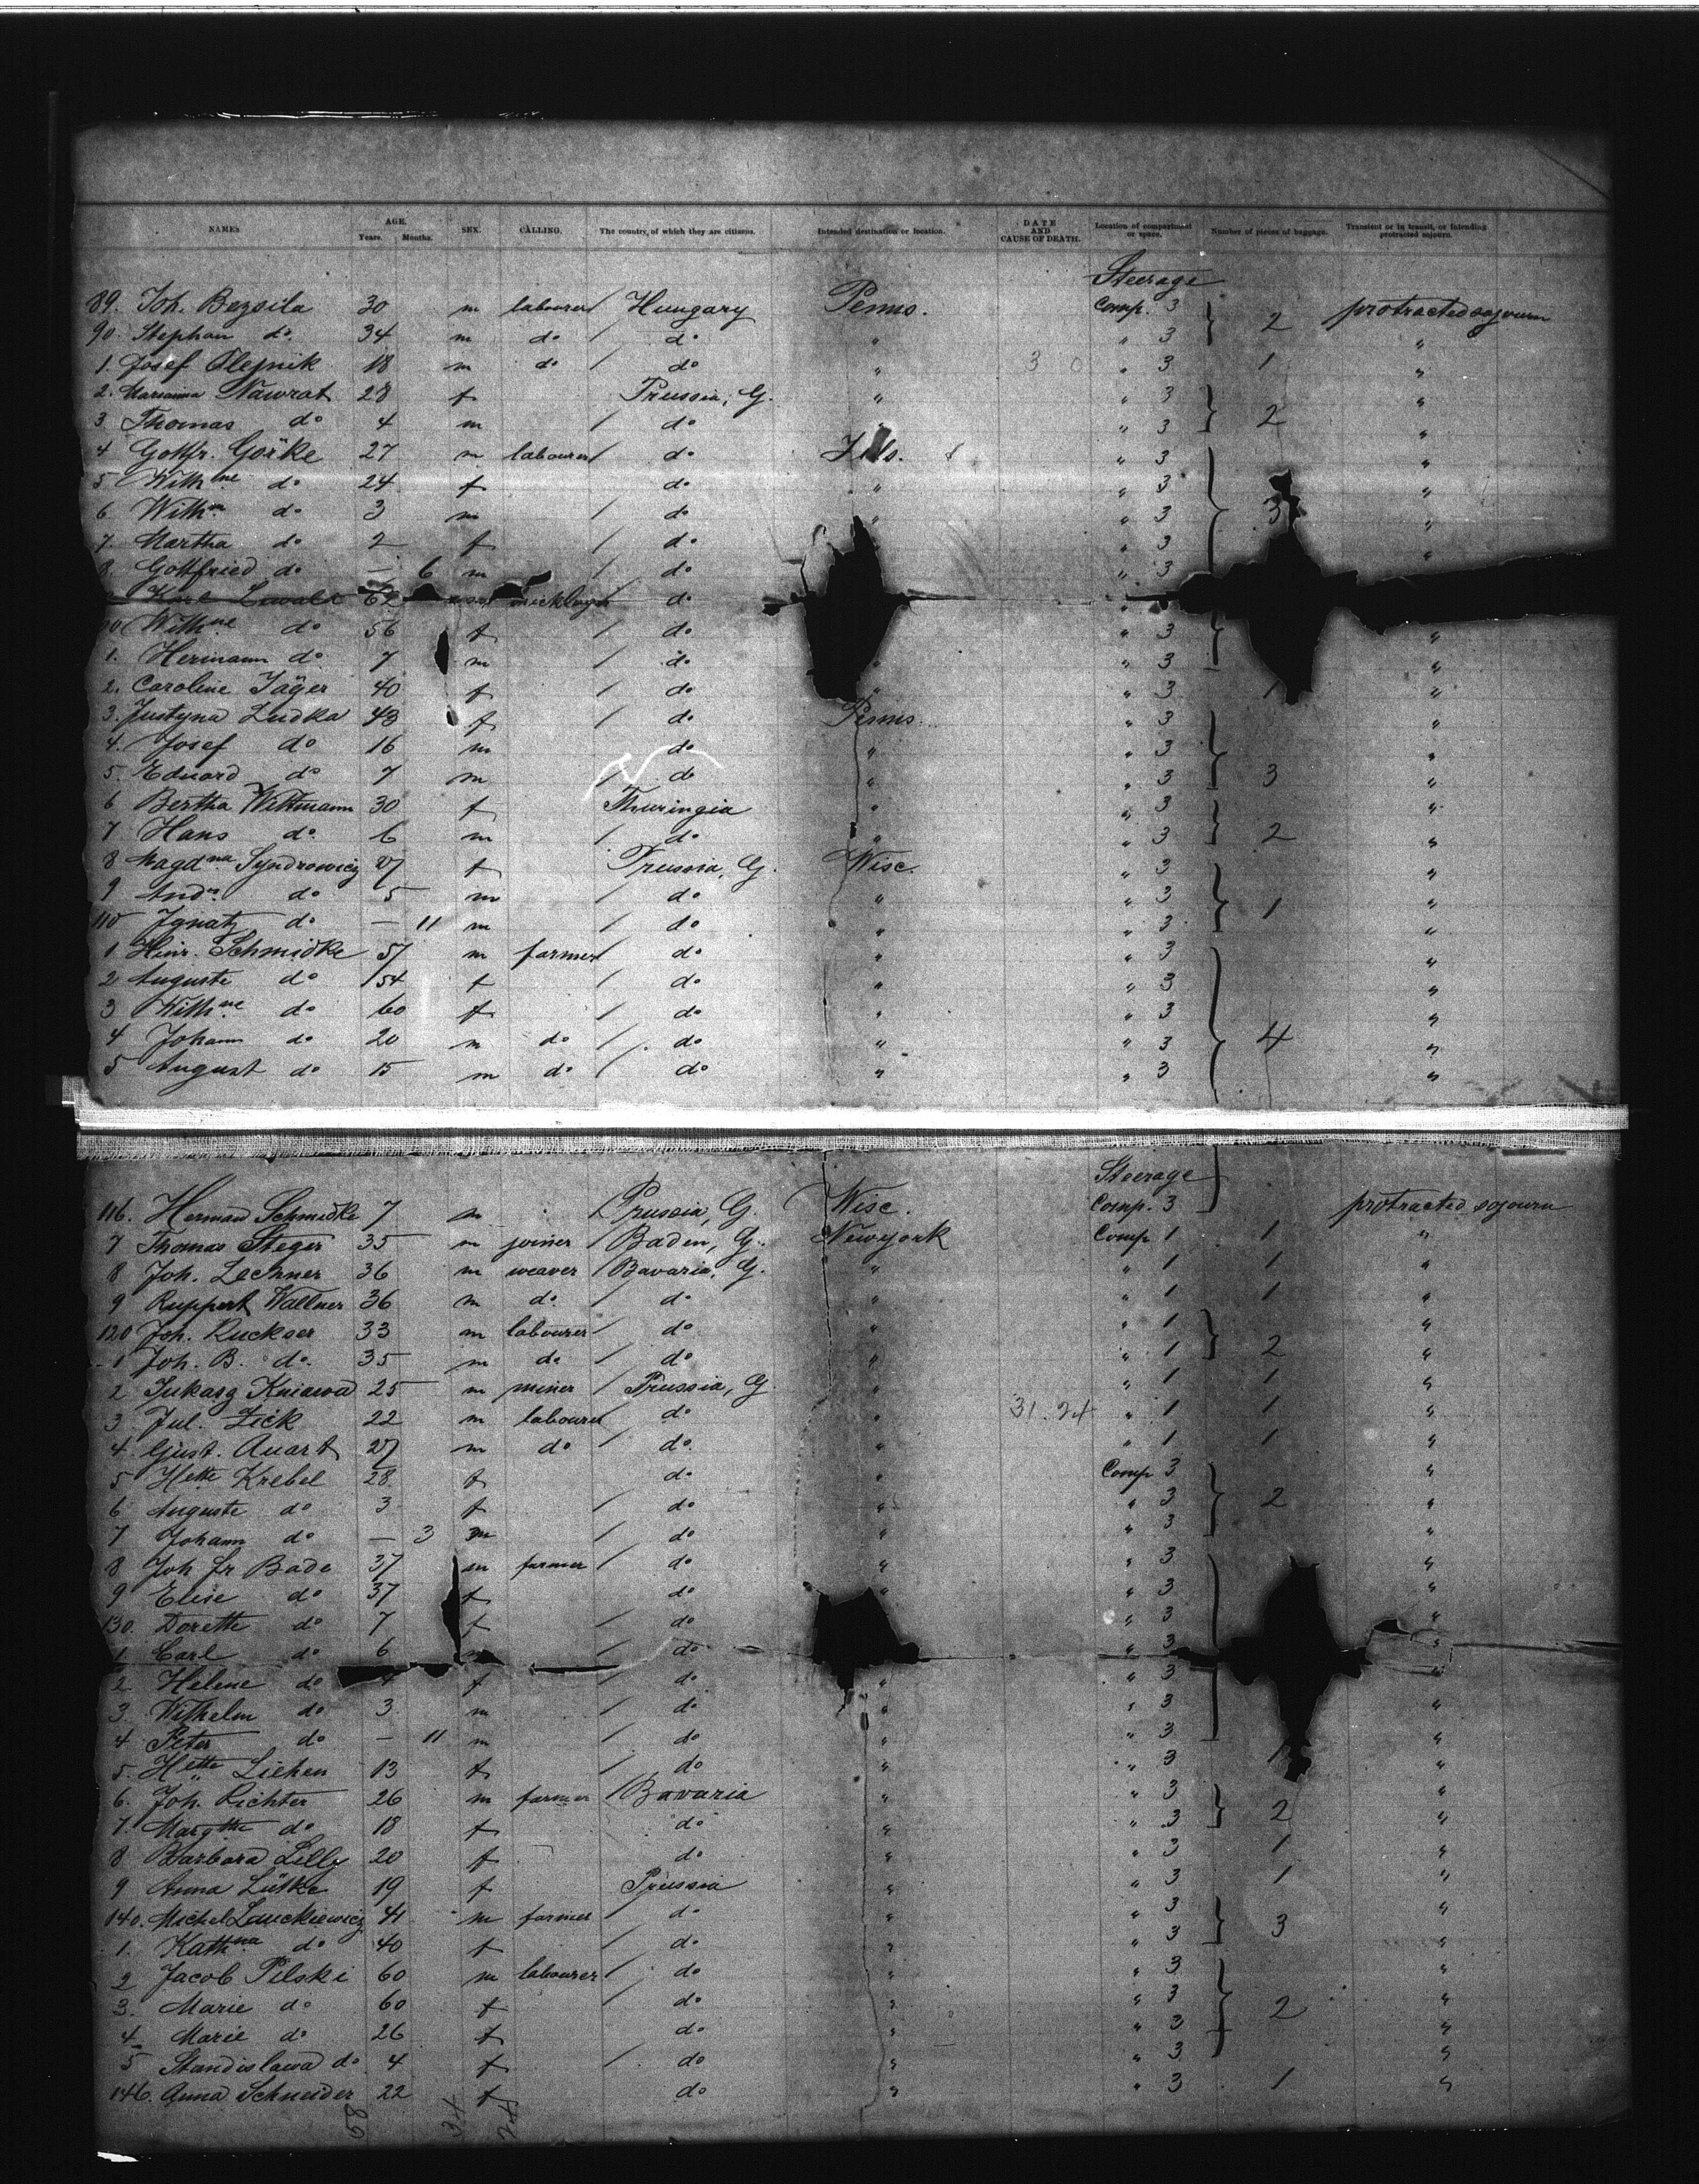 NAMES AGE. Years. Months. SEX. CALLING. The country, of which they are citizens. Intended destination or location. DATE AND CAUSE OF DEATH. Location of compartment or space. Number of pieces of baggage. Transient or in transit, or intending protracted sojourn.
Steerage
89. Joh. Bezsila 30 m labourer / Hungary Penns. Comp. 3 2 protracted sojourn
90. Stephan do. 34 m do / do " " 3 "
1. Josef Olejnik 18 m do / do " 3 0 " 3 1 "
2. Marianna Nawrat 28 f Prussia, G. " " 3 2 "
3. Thomas do 4 m / do " " 3 "
4 Gottfr. Görke 27 m labourer / do " 3 "
5 Wilhne do 24 f do " " 3 "
6 Wilhm do 3 m / do " " 3 3 "
7. Martha do 2 f / do " " 3 "
8. Gottfried do — 6 m / do " 3
Karl 62 do
Wilhne do 56 f / do " 3 "
1. Hermann do 7 m / do " " 3 "
2. Caroline Jäger 40 f / do " " 3 1 "
3. Justyna Ludka 43 f / do Penns. " 3 "
4. Josef do 16 m do " " 3 "
5. Eduard do 7 m / do " " 3 3 "
6 Bertha Wittmann 30 f Thuringia " " 3 "
7 Hans do 6 m / do " " 3 2 "
8 Magdna Syndrowicz 27 f Prussia, G. Wisc. " 3 "
9 Ands do 5 m / do " " 3 "
110 Ignatz do — 11 m / do " " 3 1 "
1 Heinr. Schmidke 57 m farmer / do " " 3 "
2 Auguste do 54 f / do " " 3 "
3 Wilhne do 60 f / do " " 3 "
4 Johann do 20 m do / do " " 3 4 "
5 August do 15 m do / do " " 3 "
Steerage
116. Herman Schmidke 7 m Prussia, G. Wisc. Comp. 3 protracted sojourn
7 Thomas Steger 35 m joiner / Baden, G. Newyork Comp 1 1 "
8 Joh. Lechner 36 m weaver / Bavaria, G. " " 1 1 "
9 Ruppert Wallner 36 m do. / do " " 1 1 "
120 Joh. Ruckser 33 m labourer / do " " 1 "
1 Joh. B. do. 35 m do / do " " 1 2 "
2 Lukasz Kniawa 25 m miner / Prussia, G " " 1 1 "
3. Jul. Zick 22 m labourer do " 31. 24 " 1 1 "
4. Gust. Auart 27 m do / do. " " 1 1 "
5 Hette Krebel 28 f do " Comp 3 "
6 Auguste do 3 f / do " " 3 2 "
7 Johann do — 3 m / do " " 3 "
8 Joh fr Bade 37 m farmer / do " " 3 "
9 Elise do 37 f do " " 3 "
130. Dorette do 7 f / do " 3 "
1. Carl do 6 / do " 3 "
2 Helene do f / do " " 3 "
3. Wilhelm do 3 m / do " " 3 "
4. Peter do — 11 m / do " " 3 "
5. Hette Liehen 13 f / do " " 3 "
6. Joh. Richter 26 m farmer / Bavaria " " 3 "
7. Margthe do 18 f do " " 3 2 "
8 Barbara Lilly 20 f do " " 3 1 "
9 Anna Lütke 19 f Prussia " " 3 1 "
140. Michel Lauckiewicz 41 m farmer / do " " 3 "
1. Kathna do 40 f / do " " 3 3 "
2 Jacob Pilski 60 m labourer / do " " 3 "
3. Marie do 60 f / do " " 3 "
4. Marie do 26 f do " " 3 2 "
5 Standislawa do 4 f / do " " 3 "
146. Anna Schneider 22 f do " " 3 1 "
58 34 24